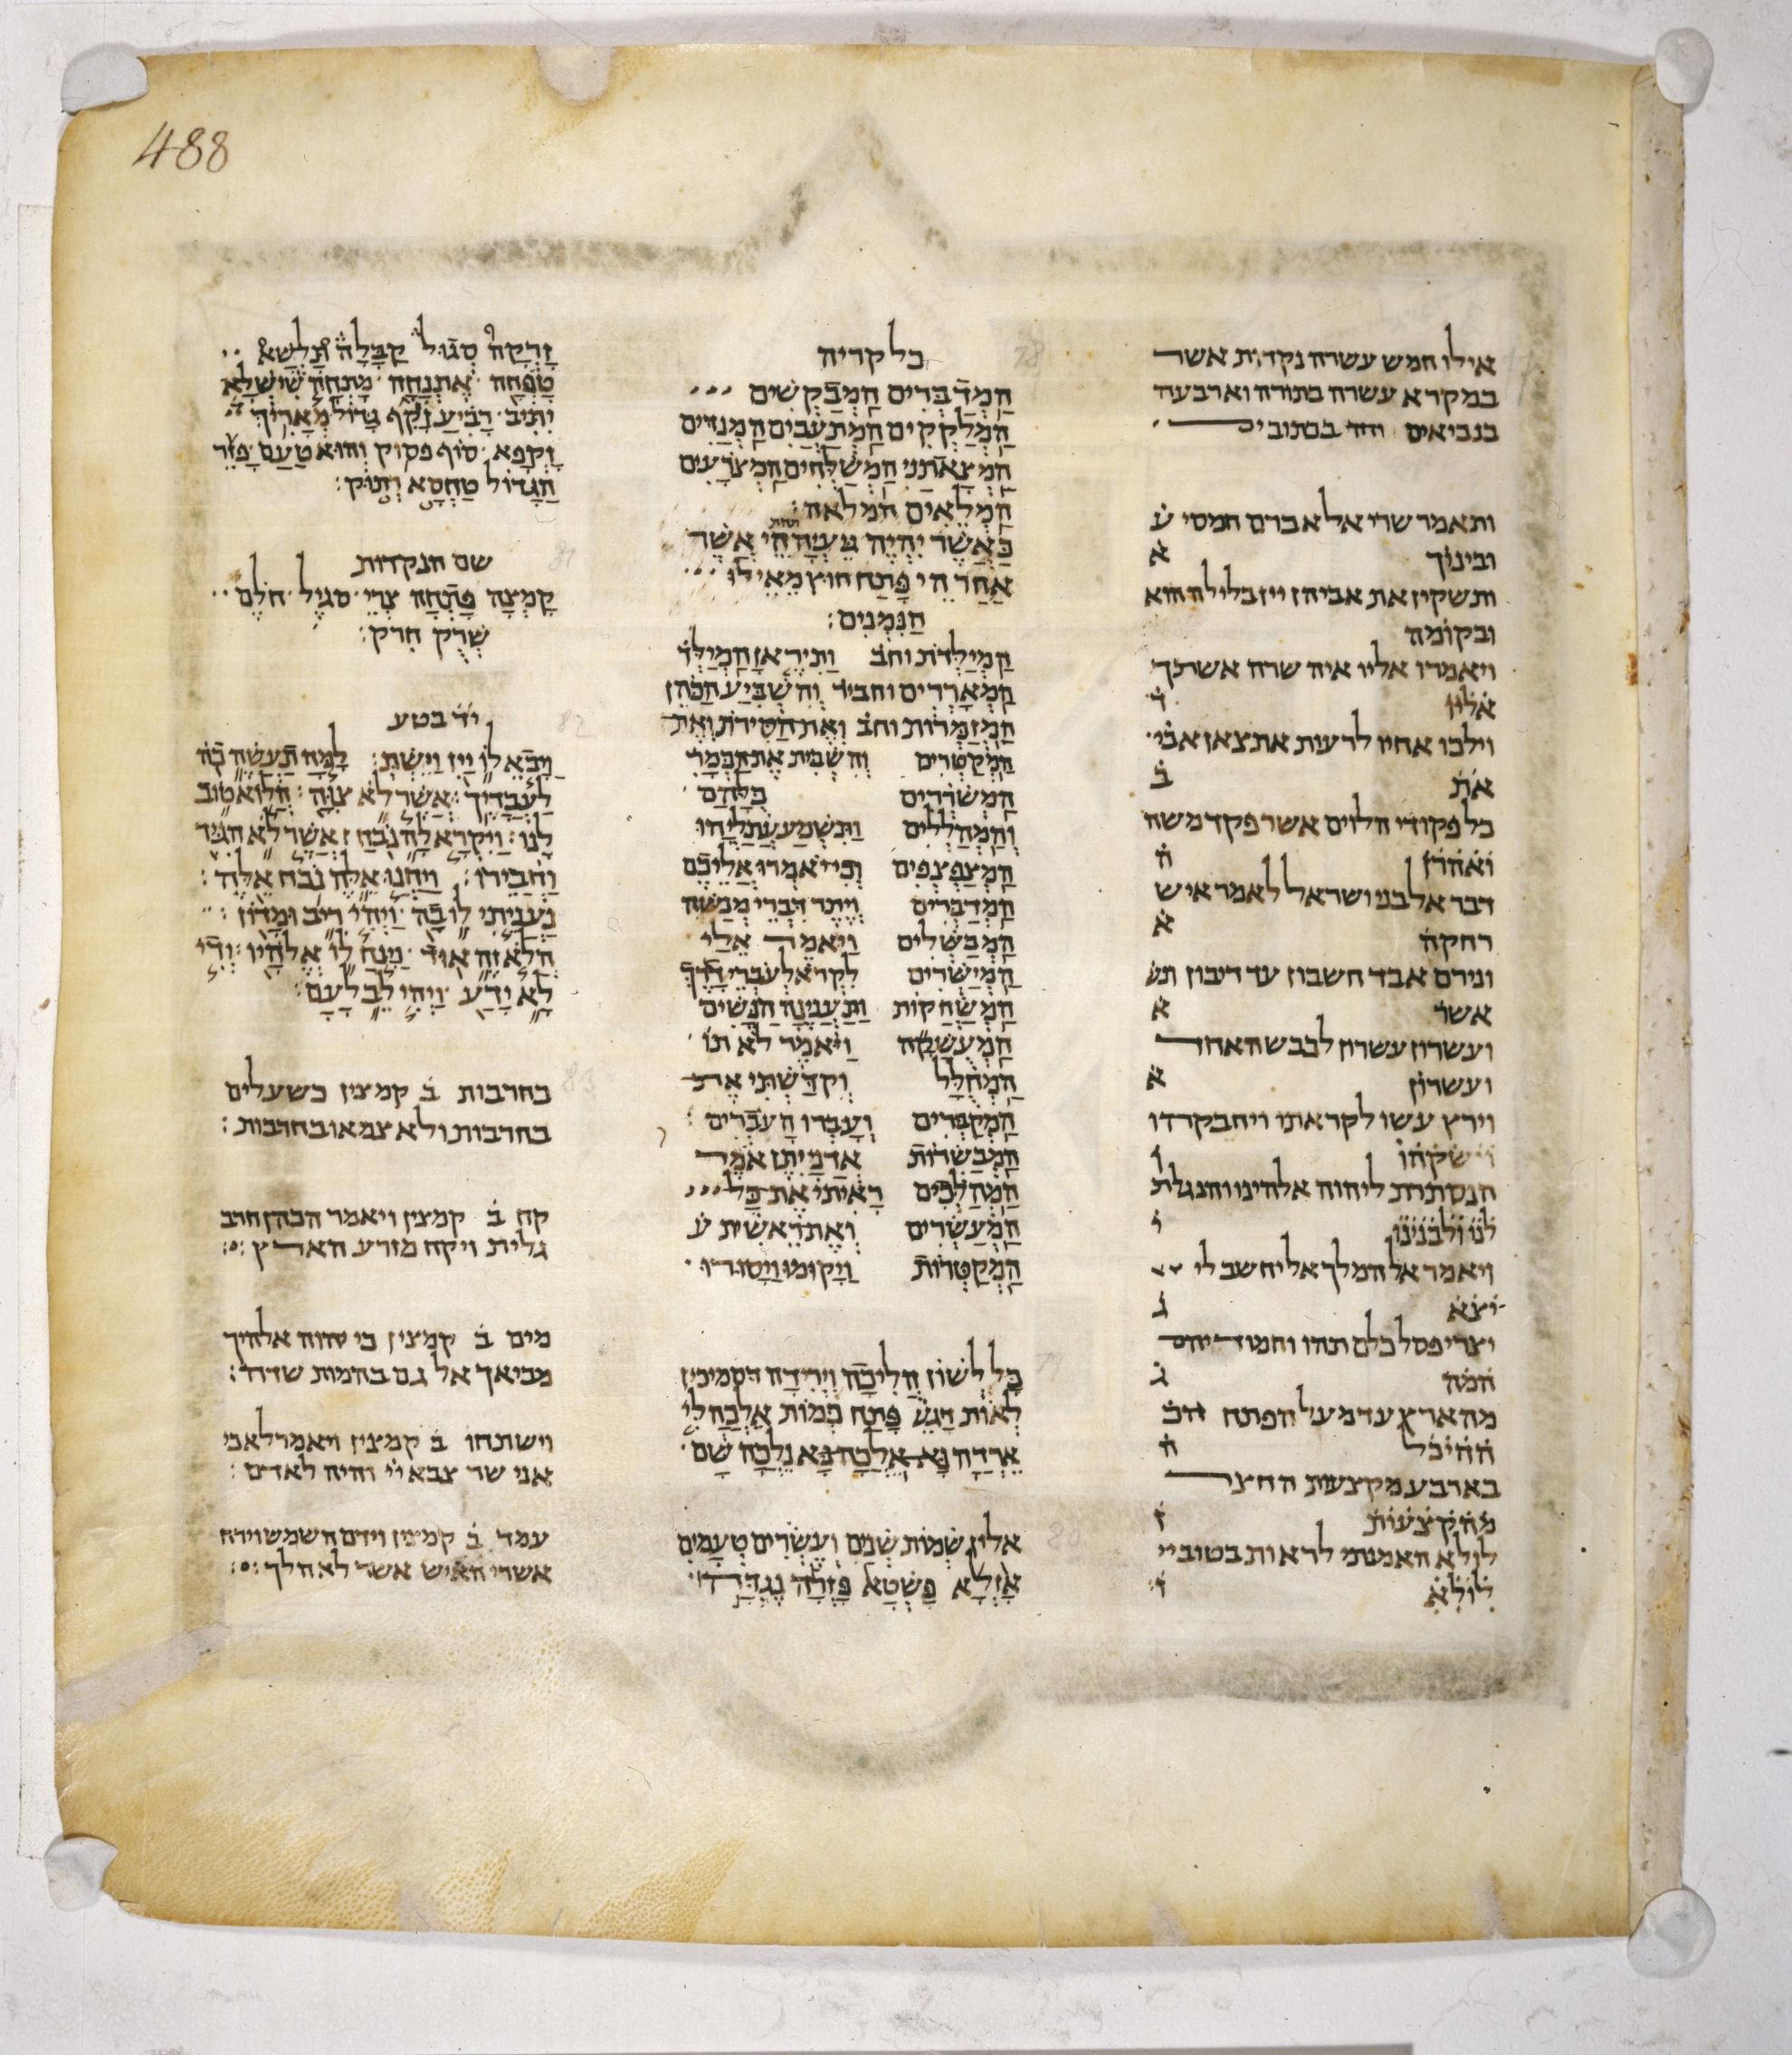 488
אילו חמש עשרה נקדות אשר
במקרא עשרה בתורה וארבעה
בנביאים וחד בכתובים
ותאמר שרי אל אברם חמסי ע
ובינוך א
ותשקין את אביהן יין בלילה הוא
ובקומה
ויאמרו אליו איה שרה אשתך
אליו ד
וילכו אחיו לרעות את צאן אבי
את ב
כל פקודי הלוים אשר פקד משה
ואהרן ה
דבר אל בני ישראל לאמר איש
רחקה א
ונירם אבד חשבון עד דיבון ונש
אשר א
ועשרון עשרון לכבש האחד
ועשרון א
וירץ עשו לקראתו ויחבקהו
וישקהו ו
הנסתרת ליהוה אלהינו והנגלת
לנו ולבנינו י
ויאמר אל המלך אל יחשב לי
יצא ג
יצרי פסל כלם תהו וחמודיהם
המה ג
מהארץ עד מעל הפתח הכ
ההיכל ה
בארבע מקצעות החצר
מהקצעות ז
לולא האמנתי לראות בטוב יי
לולא ד
כל קריה
הַמְדַבְּרִים הַמְבַקְשִׁים
הַמְלַקְקִים הַמְתַעֲבִים הַמְנַדִּים
הַמְצָאתַנִי הַמְשַׁלְּחִים הַמְצֹרָעִים
הַמְלֵאִים המלאה׃
כַּאֲשֶׁר יִהְיֶה תחת הֵי אֲשֶׁר
אַחַר הֵי פָּתַח חוּץ מֵאֵילּוּ
הַנִּמְנִים׃
הַמְיַלְּדֹת וחב וַתִּירֶאןָ הַמְיַלְּדֹ
הַמְאָרְרִים וחביר וְהִשְׁבִּיעַ הַכֹּהֵן
הַמְזַמְּרוֹת וחב וְאֶת הַסִּירֹת וְאֶת
הַמְקַטְּרִים וְהִשְׁבִּית אֶת הַכְּמָרִ
הַמְשֹׁרְרִים כֻּלָּהַם
וְהַמְהַלְלִים וַתִּשְׁמַע עֲתַלְיָהוּ
הַמְצַפְצְפִים וְכִי יֹאמְרוּ אֲלֵיכֶם
הַמְדַבְּרִים וְיֶתֶר דִּבְרֵי מְנַשֶּׁה
הַמְבַשְּׁלִים וַיֹּאמֶר אֵלַי
הַמְיַשְּׁרִים לִקְרֹא לְעֹבְרֵי דָרֶךְ
הַמְשַׂחֲקוֹת וַתַּעֲנֶינָה הַנָּשִׁים
הַמְעֻשָּׁקָה וַיֹּאמֶר לֹא תוֹ
הַמְחֻלָּל וְקִדַּשְׁתִּי אֶת
הַמְקַבְּרִים וְעָבְרוּ הָעֹבְרִים
הַמְבַשְּׂרוֹת אֲדֹנָי יִתֶּן אֹמֶר
הַמְהַלְּכִים רָאִיתִי אֶת כָּל
הַמְעַשְּׂרִים וְאֶת רֵאשִׁית ע
הַמְקַטְּרוֹת וַיָּקוּמוּ וַיָּסִירוּ
כָּל לְשׁוֹן הֲלִיכָה וִירִידָה הסמיכין
לְאוֹת דָּגֵשׁ פָּתַח כְּמוֹת אֵלְכָה לִּי
אֵרְדָה נָּא אֵלֲכָה נָּא נֵלֲכָה שָּׁם
אלין שְׁמוֹת שְׁנַיִם וְעֶשְׂרִים טְעָמִים
אָזְלָא פַּשְׁטָא פָּזְרָה נֶגְדָּה
זָרְקָה סְגוּל קַבָּלָה תַּלְשָׁא
טָפְחָה אֶתְנָחָה מָתְחָה שִׁישְׁלָא
יְתִיב רָבִיעַ זָקֵף גָּדוֹל מָאֲרִיךְ
זָקְפָא סוֹף פסוק והוא טַעַם פָּזֵר
הַגָּדוֹל טַחְסָא וְתוּק׃
שם הנקדות
קָמְצָה פָּתְחָה צֵרֵי סגול חֹלֶם
שֻׁרֻק חִרֶק׃
יד בטע
וַיָּבֵא לוֹ יַיִן וַיֵּשְׁתְּ׃ לָמָּה תַעֲשֶׂה כֹה
לַעֲבָדֶיךָ׃ אֲשֶׁר לֹא צִוָּה׃ הֲלוֹא טוֹב
לָנוּ׃ וַיִּקְרָא לָהּ נֹבַח׃ אֲשֶׁר לֹא הִגִּיד
וַחֲבֵירוֹ׃
לֹא יָדַע וַיְהִי לֵב לָעָם׃
בחרבות ב קמצין כשעלים
בחרבות ולא צמאו בחרבות׃
קח ב קמצין ויאמר הכהן חרב
גלית ויקח מזרע הארץ׃
מים ב קמצין כי יהוה אלהיך
מביאך אל גם בהמות שדה׃
וישתחו ב קמצין ויאמר לא כי
אני שר צבא יי והיה לאדם׃
עמד ב קמצין וידם השמש וירח
אשרי האיש אשר לא הלך׃